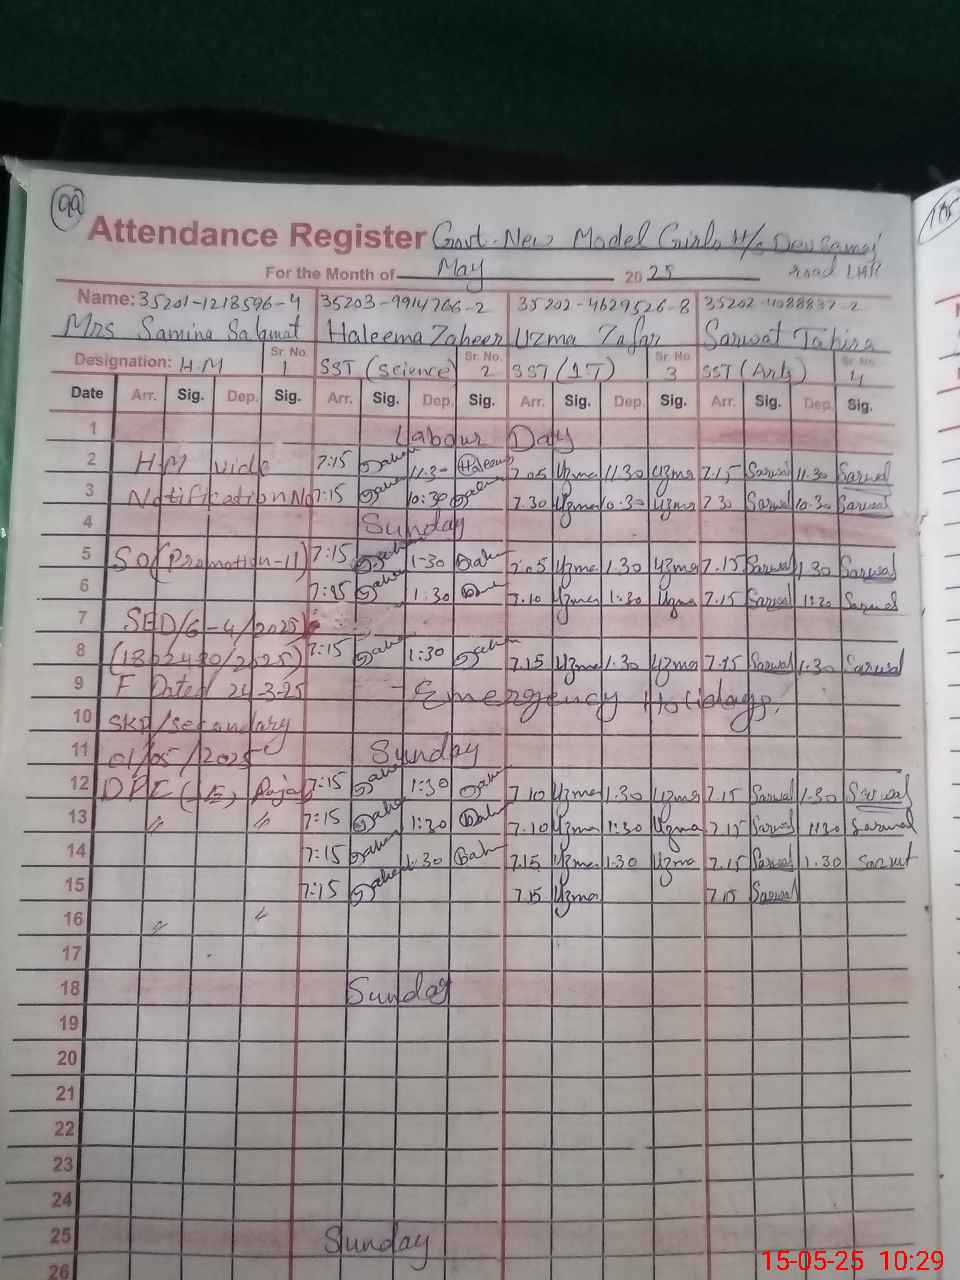 99
Attendance Register Govt. New Model Girls H/S Dev Samaj
For the Month of May 2025 road LHR
Name: 35201-1218596-4 35203-9914766-2 35202-4629526-8 35202-4088837-2
Mrs Samina Salamat Haleema Zaheer Uzma Zafar Sarwat Tahira
Designation: H.M Sr. No. 1 SST (Science) Sr. No. 2 SST (IT) Sr. No 3 SST (Arts) Sr. No 4
Date Arr. Sig. Dep. Sig. Arr. Sig. Dep. Sig. Arr. Sig. Dep. Sig. Arr. Sig. Dep. Sig.
1 Labour Day
2 HM vide 7:15 11:30 Haleema 7.05 Uzma 11.30 Uzma 7.15 Sarwat 11.30 Sarwat
3 Notification No 7:15 10:30 7.30 Uzma 10.30 Uzma 7.30 Sarwat 10.30 Sarwat
4 Sunday
5 SO(Promotion-II) 7:15 1-30 7.05 Uzma 1.30 Uzma 7.15 Sarwat 1.30 Sarwat
6 1:30 7.10 Uzma 1:30 Uzma 7.15 Sarwat 1:30 Sarwat
7 SED/6-4/2025
8 7:15 1:30 7.15 Uzma 1.30 Uzma 7.15 Sarwat 1.30 Sarwat
9 F Dated 24-3-25 Emergency Holidays.
10 SKP/secondary
11 01/05/2025 Sunday
12 7:15 1:30 7.10 Uzma 1.30 Uzma 7.15 Sarwat 1.30 Sarwat
13 〃 〃 7:15 1:30 7.10 Uzma 1:30 Uzma 7.15 Sarwat 1:30 Sarwat
14 7:15 1:30 7.15 Uzma 1.30 Uzma 7.15 Sarwat 1.30 Sarwat
15 7:15 7.15 Uzma 7.15 Sarwat
16 〃 〃
17
18 Sunday
19
20
21
22
23
24
25 Sunday
26
15-05-25 10:29